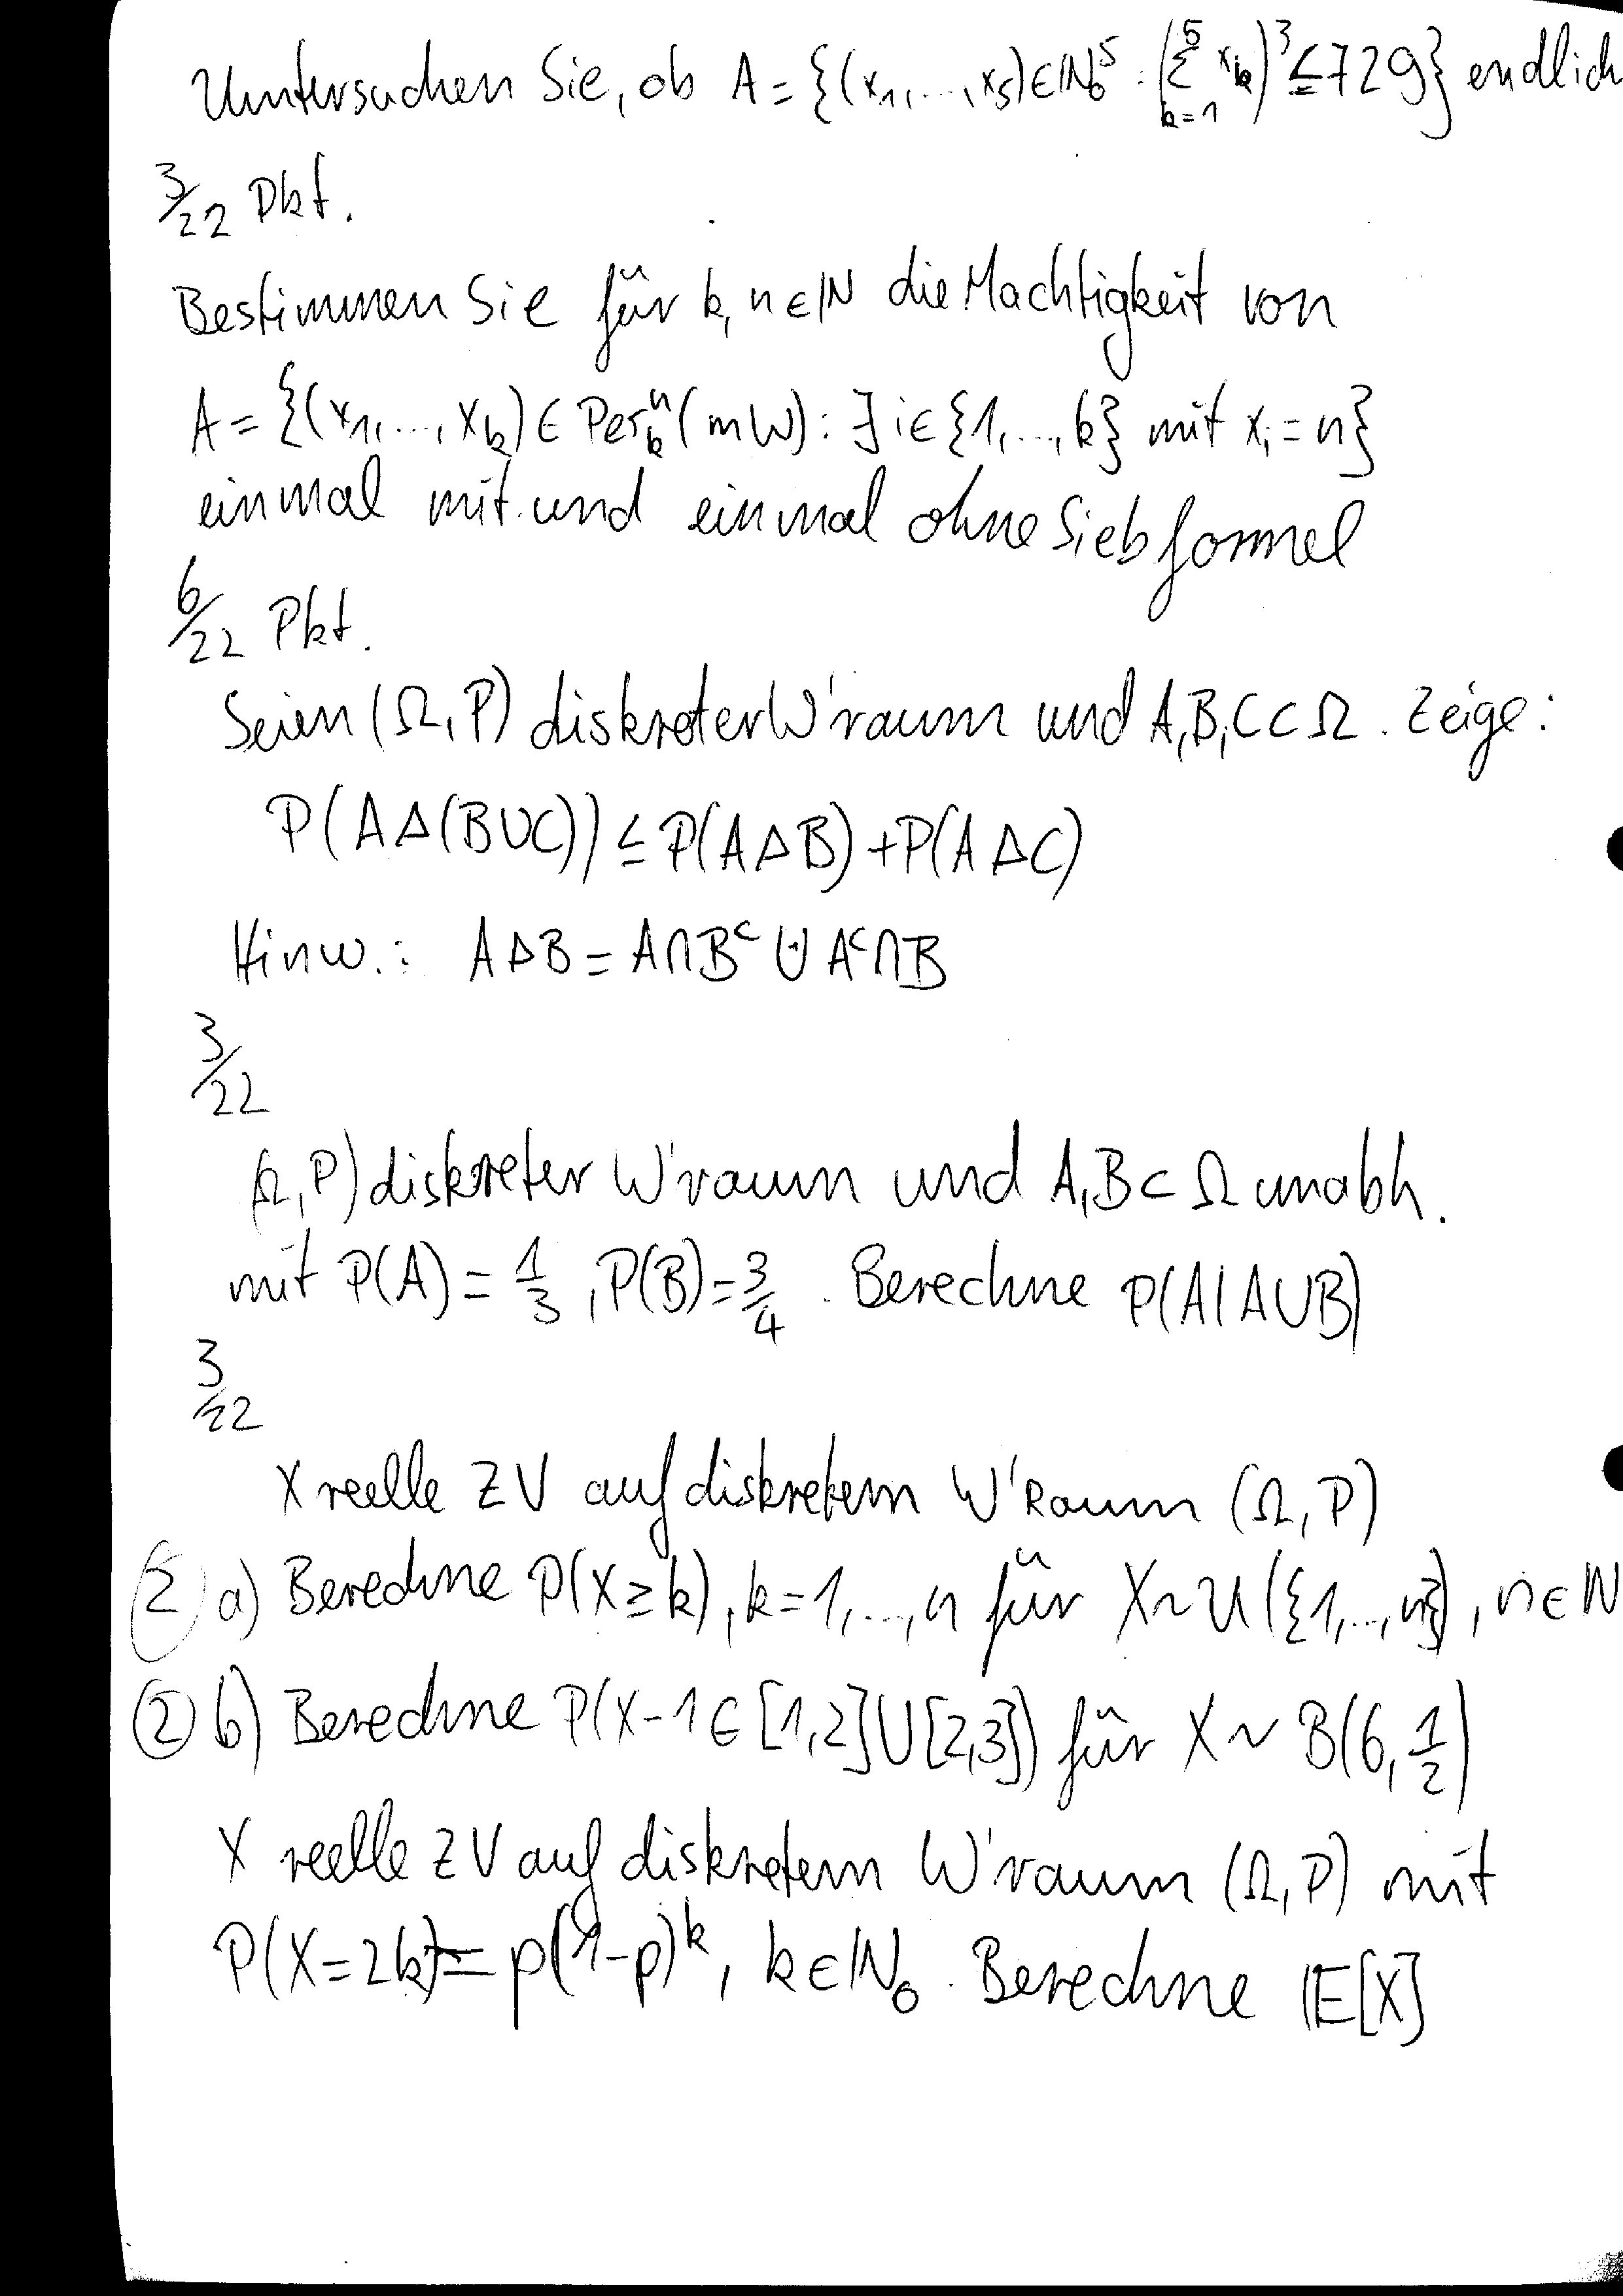 Untersuchen Sie, ob A = {(x₁,...,x₅)∈ℕ₀⁵ : (∑_{k=1}^{5} x_k)³ ≤ 729} endlich
3/22 Pkt.
Bestimmen Sie für k, n ∈ ℕ die Machtigkeit von
A = {(x₁,...,x_k) ∈ Per_k^n (mW) : ∃ i ∈ {1,...,k} mit x_i = n}
einmal mit und einmal ohne Siebformel
6/22 Pkt.
Seien (Ω, P) diskreter W'raum und A, B, C ⊂ Ω. Zeige:
P(A Δ (B ∪ C)) ≤ P(A Δ B) + P(A Δ C)
Hinw.: A Δ B = A ∩ Bᶜ ⊍ Aᶜ ∩ B
3/22
(Ω, P) diskreter W'raum und A, B ⊂ Ω unabh.
mit P(A) = 1/3, P(B) = 3/4. Berechne P(A | A ∪ B)
3/22
X reelle ZV auf diskretem W'Raum (Ω, P)
② a) Berechne P(X ≥ k), k = 1,...,n für X ~ U({1,...,n}), n ∈ ℕ
② b) Berechne P(X - 1 ∈ [1,2] ∪ [2,3]) für X ~ B(6, 1/2)
X reelle ZV auf diskretem W'raum (Ω, P) mit
P(X = 2k) = p(1-p)^k, k ∈ ℕ₀. Berechne 𝔼[X]